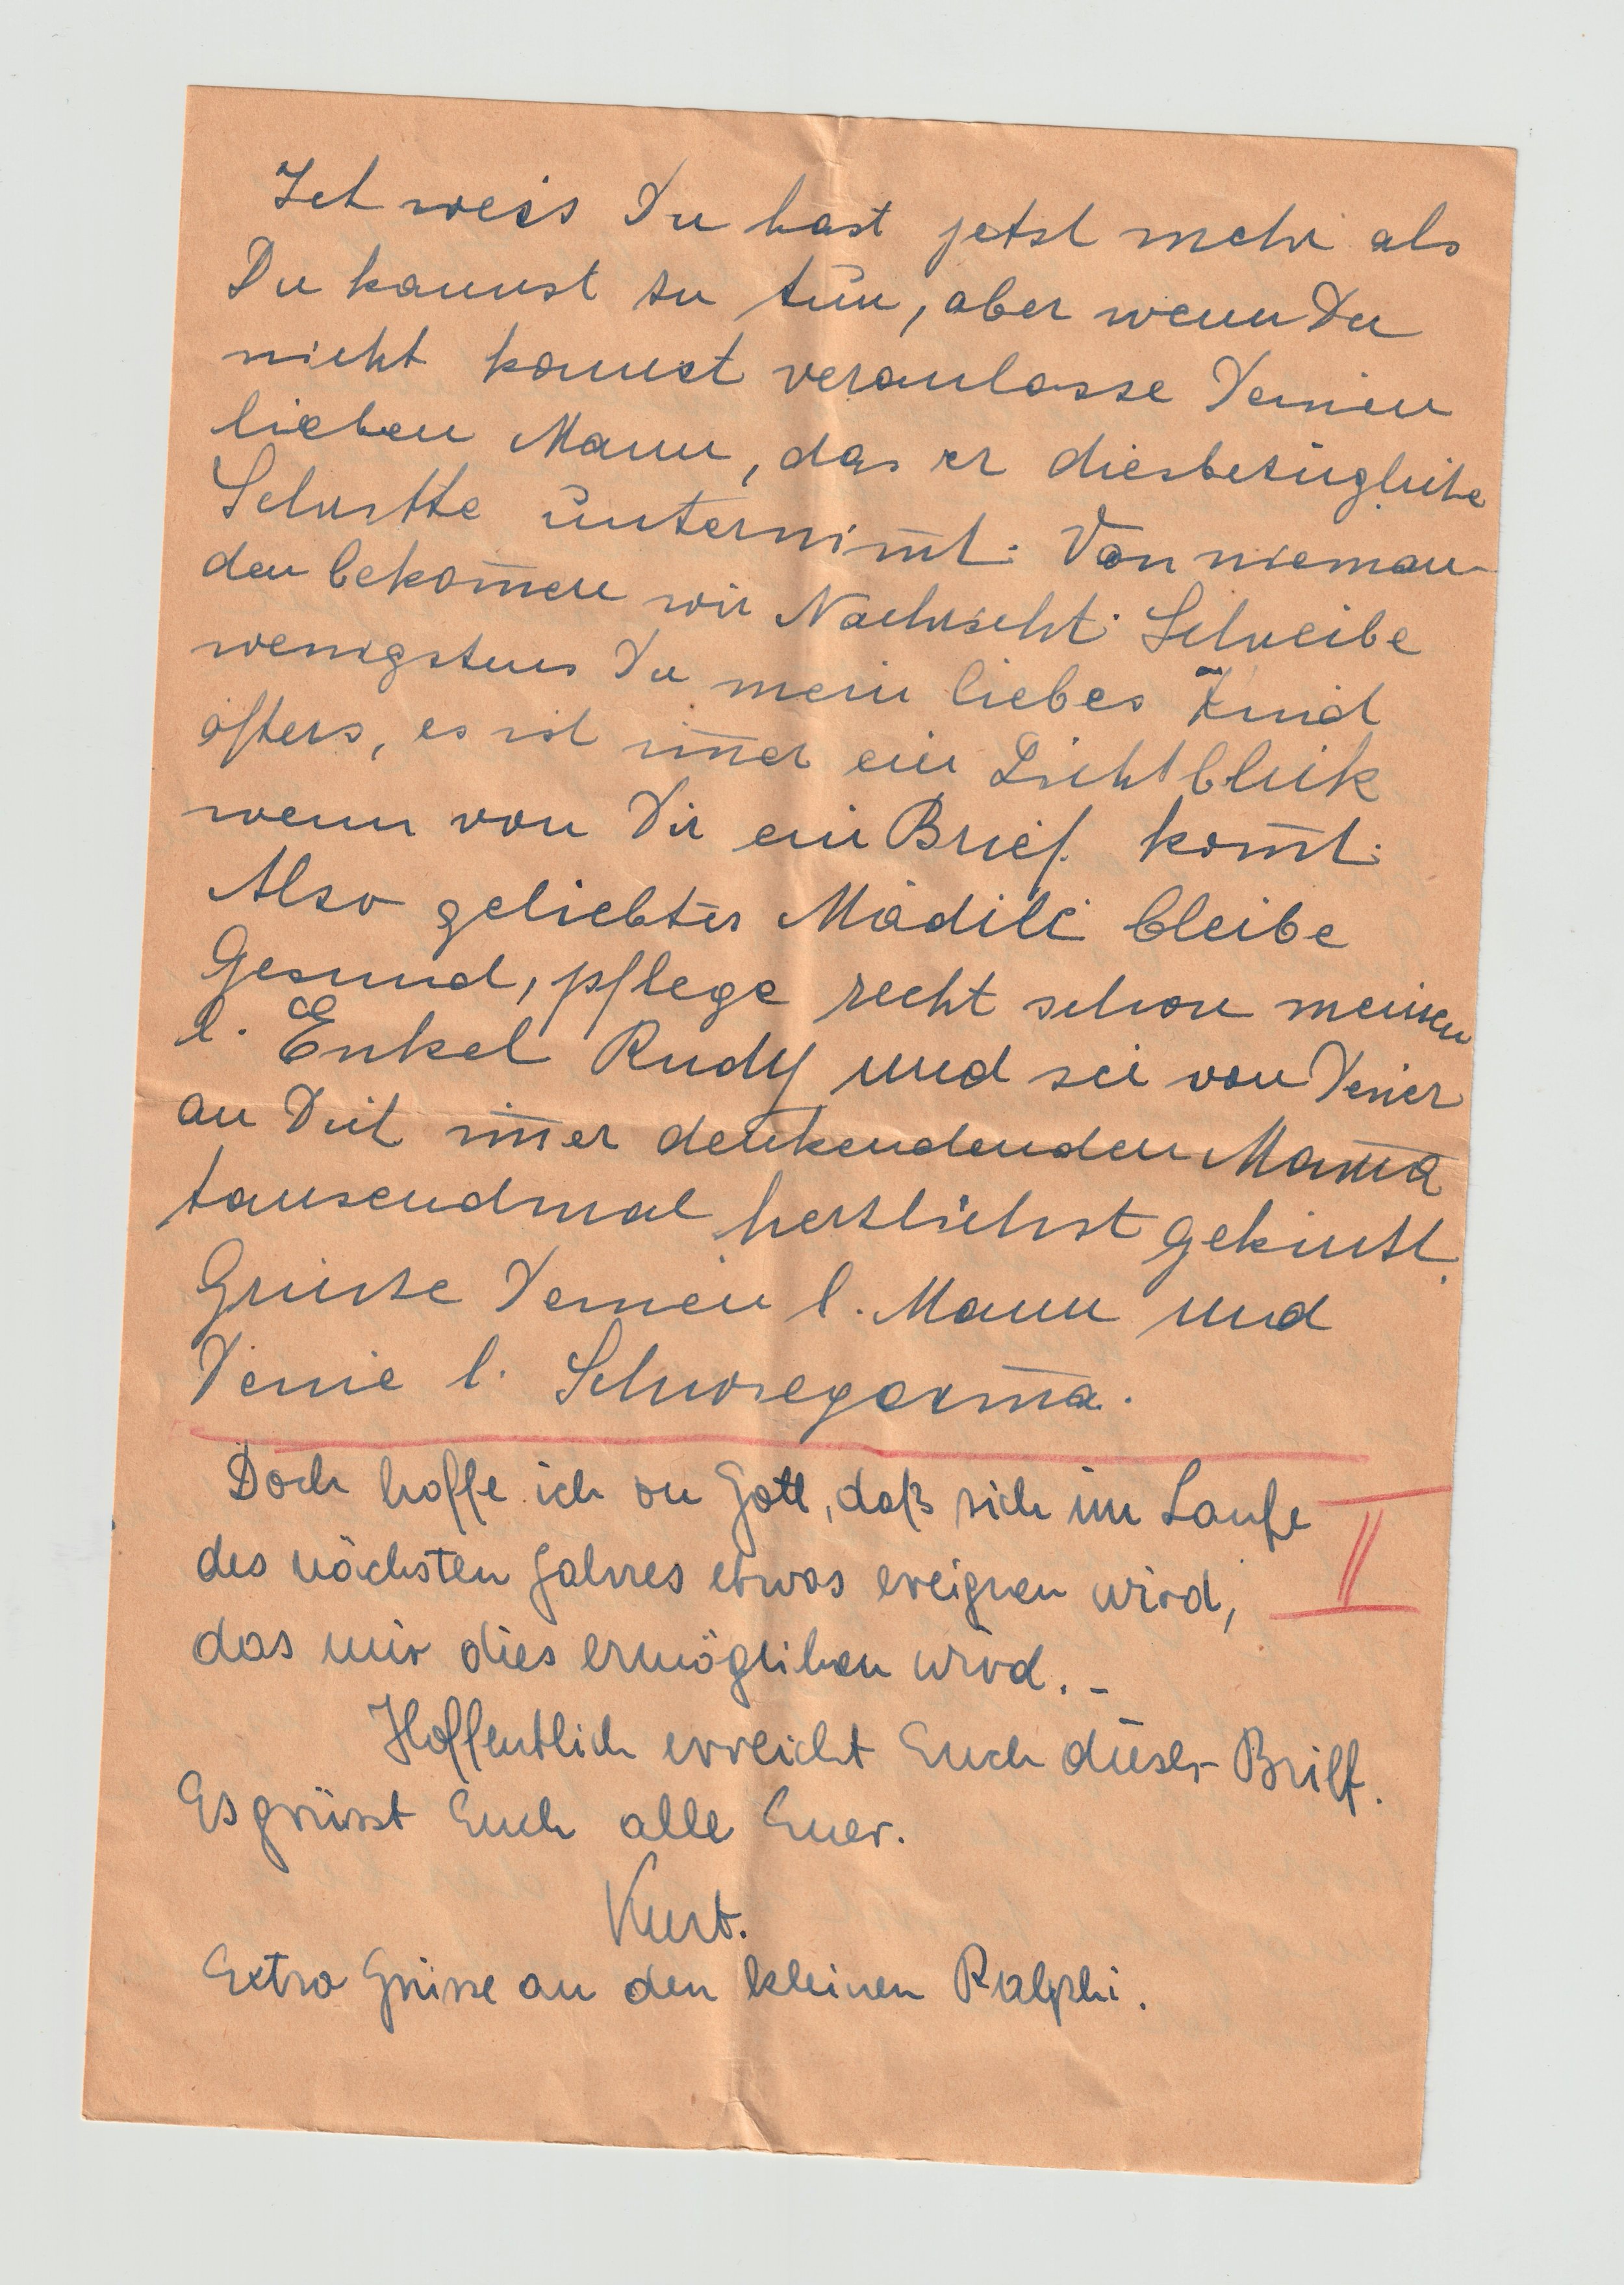 Ich weis Du hast jetzt mehr als
Du kannst zu tun, aber wenn Du
nicht kannst veranlasse Deinen
lieben Mann, das er diesbezügliche
Schritte unternim̅t. Von nieman-
den bekom̅en wir Nachricht. Schreibe
wenigstens Du mein liebes Kind
öfters, es ist im̅er ein Lichtblick
wenn von Dir ein Brief kom̅t.
Also geliebtes Mädili bleibe
Gesund, pflege recht schön meinen
l. Enkel Rudy und sei von Deiner
an Dich im̅er denkendenden Mama
tausendmal herzlichst geküsst.
Grüsse Deinen l. Mann und
Deine l. Schwiegerm̅a.
Doch hoffe ich zu Gott, daß sich im Laufe
des nächsten Jahres etwas ereignen wird,
II
das mir dies ermöglichen wird. -
Hoffentlich erreicht Euch dieser Brief.
Es grüsst Euch alle Euer.
Kurt.
Extra Grüsse an den kleinen Ralphi.